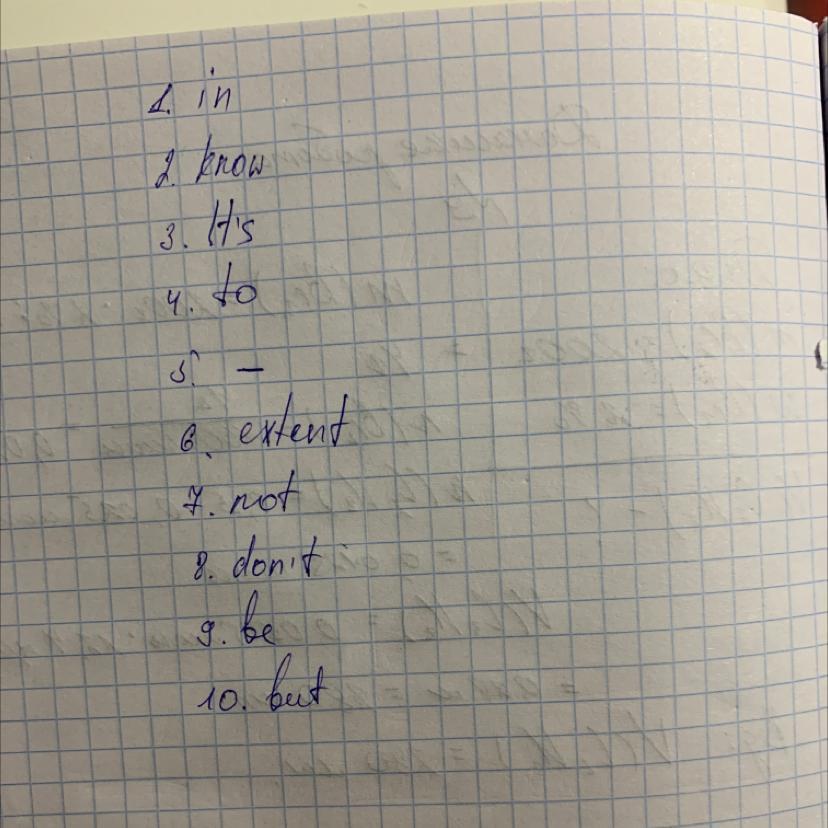 1. in
2. know
3. It's
4. to
5. —
6. extent
7. not
8. don't
9. be
10. but